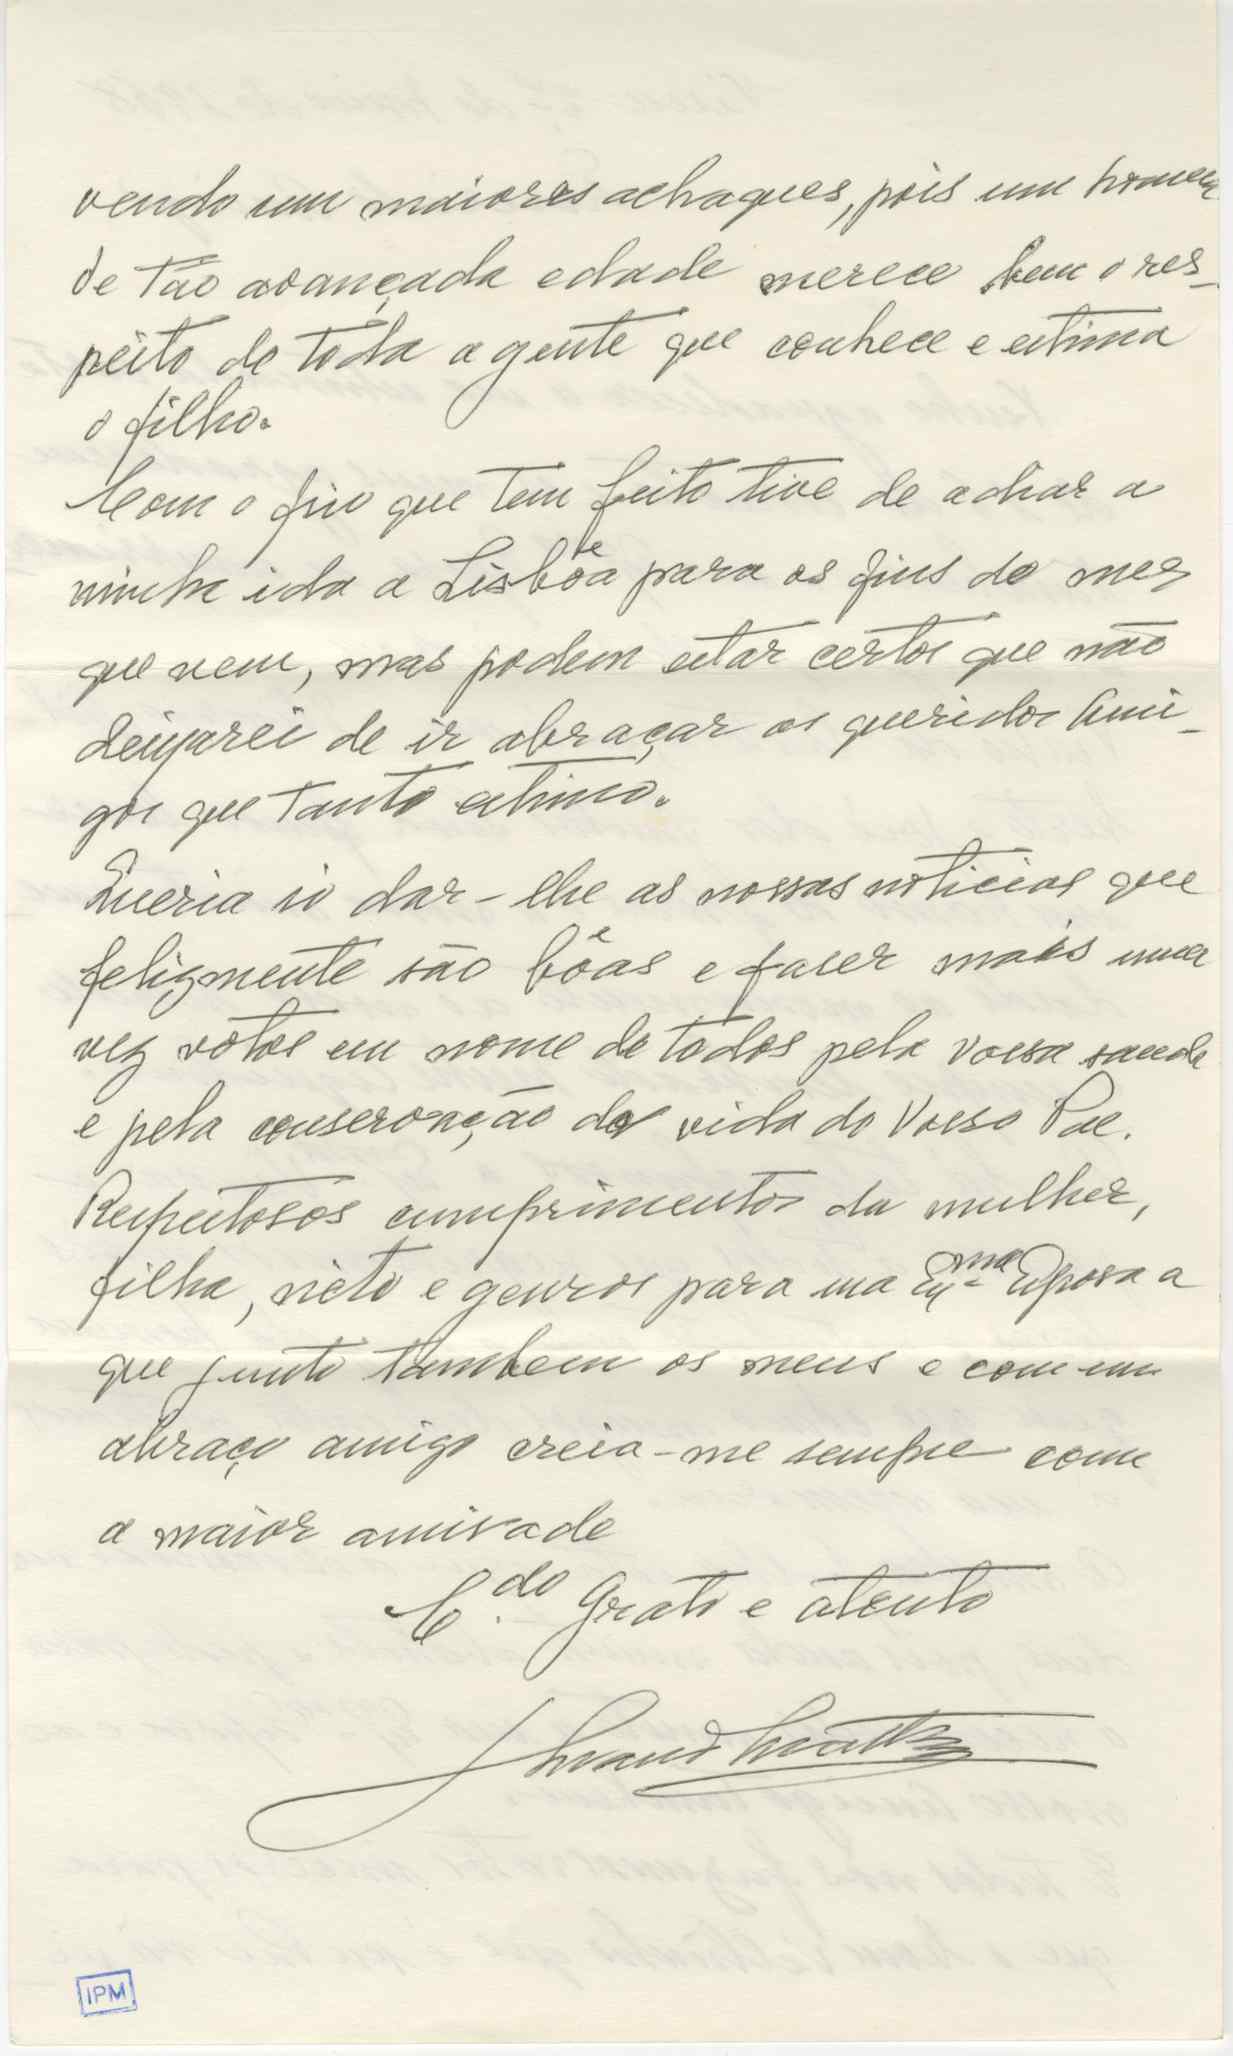 vendo um maiores achaques, pois um homem
de tão avançada edade merece bem o res-
peito de toda a gente que conhece e estima
o filho.
Com o frio que tem feito tive de adiar a
minha ida a Lisbôa para os fins do mez
que vem, mas podem estar certos que não
deixarei de ir abraçar os queridos Ami-
gos que tanto estimo.
Queria só dar-lhe as nossas noticias que
felizmente são bôas e faser mais uma
vez votos em nome de todos pela vossa saude
e pela conservação da vida do Vosso Pae.
Respeitosos cumprimentos da mulher,
filha, neto e genros para sua Exma Esposa a
que junto tambem os meus e com um
abraço amigo creia-me sempre com
a maior amisade
C.do Grato e atento
IPM